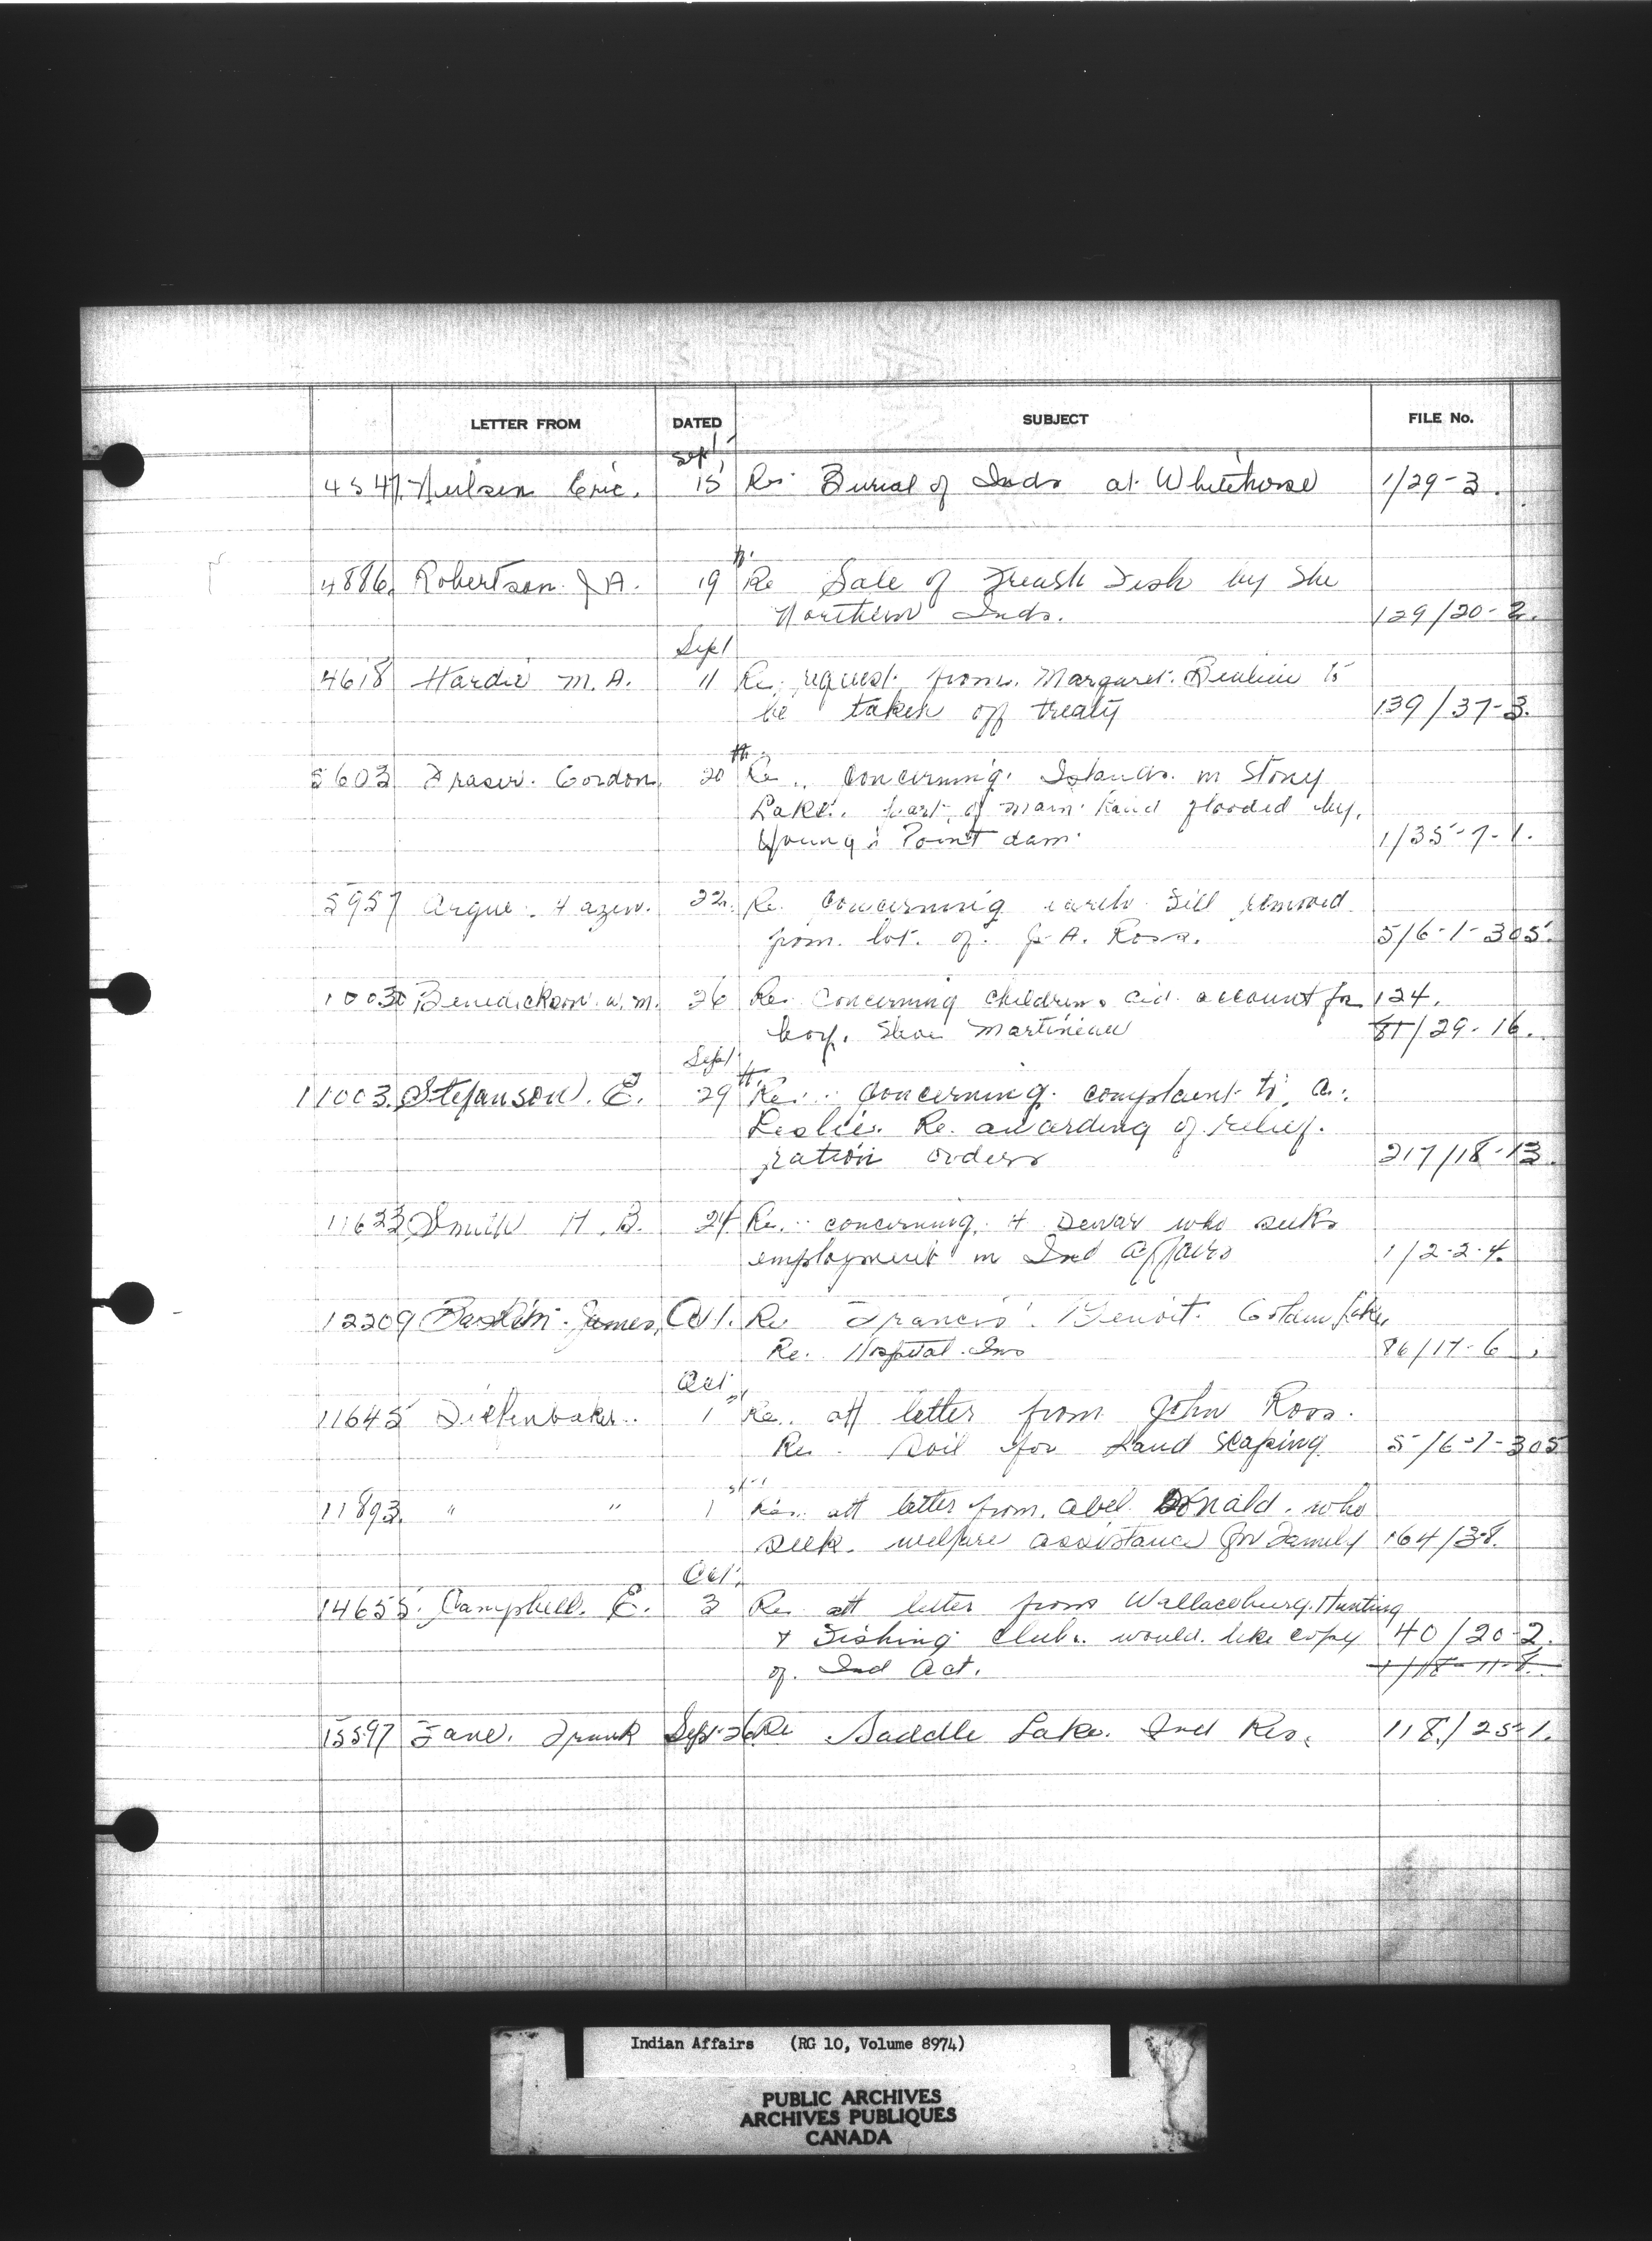 LETTER FROM DATED SUBJECT FILE No.
Sept
4547 Neilsen Eric. 15 Re: Burial of Inds at Whitehorse 1/29-3.
4886. Robertson J A. 19 Re Sale of Freash Fish by The
Northern Inds. 129/20-2.
Sept
4618 Hardie M. A. 11 Re. request from. Margaret to
be taken off treaty 139/37-3.
5603 Fraser. Gordon. 20th Re.. Concerning. Islands. in Stony
Lake. part of main land flooded by.
Young's Point dam. 1/35-7-1.
5957 Argue. Hazen. 22. Re. Concerning earth fill removed
from. lot. of. J. A. Ross. 5/6-1-305.
10030 Benedickson. w. m. 26 Re. Concerning childrens aid. account for 124.
boy. Martineau 81/29-16.
Sept
11003. Stefanson. E. 29th Re.. Concerning. complaint to A.
Leslie. Re. awarding of relief.
ration orders 217/18-13.
11622 Smith H. B. 24 Re.. concerning. H Dewar who seeks
employment in Ind Affairs 1/2-2-4.
12209 James, Oct 1. Re Francis Benoit. Golden Lake,
Re. Hospital. Ins 86/17-6
Oct
11645 Diefenbaker.. 1st Re.. att letter from John Ross.
Re. Soil for Land Scaping 5/6-1-305
11893. " " 1st Re.. att letter from. Abel Donald. who
seek. welfare assistance for Family 164/3-8.
Oct.
14655. Campbell. E. 3 Re att letter from Wallaceburg. Hunting
& Fishing Club. would. like copy 40/20-2.
of. Ind Act. 1/18-11-8.
15597 Fane. Frank Sept. 26 Re Saddle Lake. Ind Res. 118./25-1.
Indian Affairs (RG 10, Volume 8974)
PUBLIC ARCHIVES
ARCHIVES PUBLIQUES
CANADA